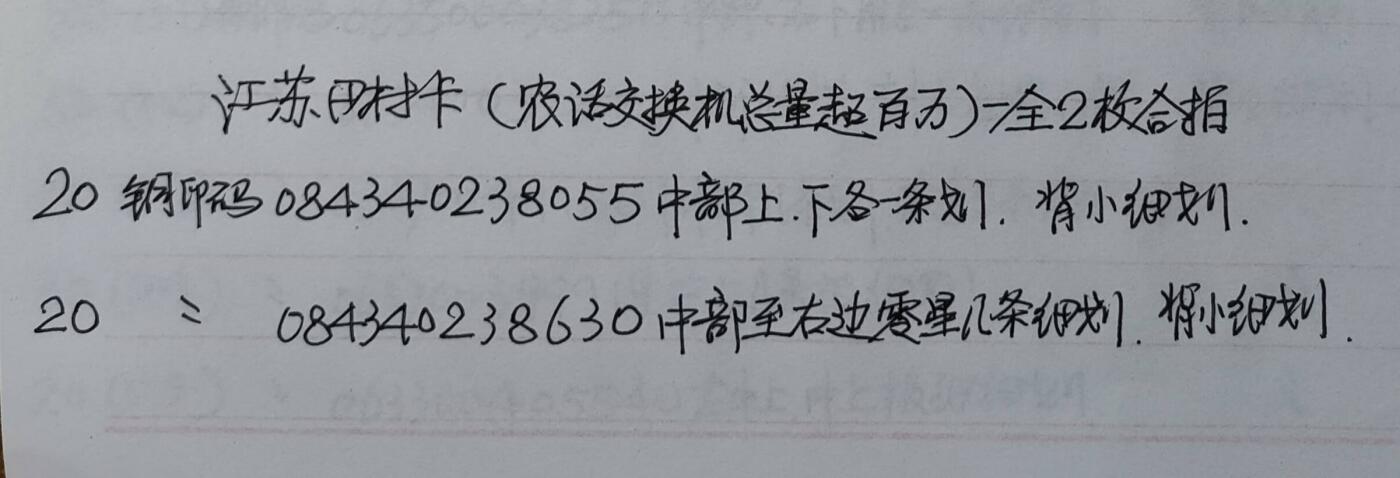 江苏田村卡(农话交换机总量超百万)-全2枚合拍
20 钢印码 084340238055 中部上.下各一条划. 背小细划.
20 〻 084340238630 中部至右边零星几条细划. 背小细划.